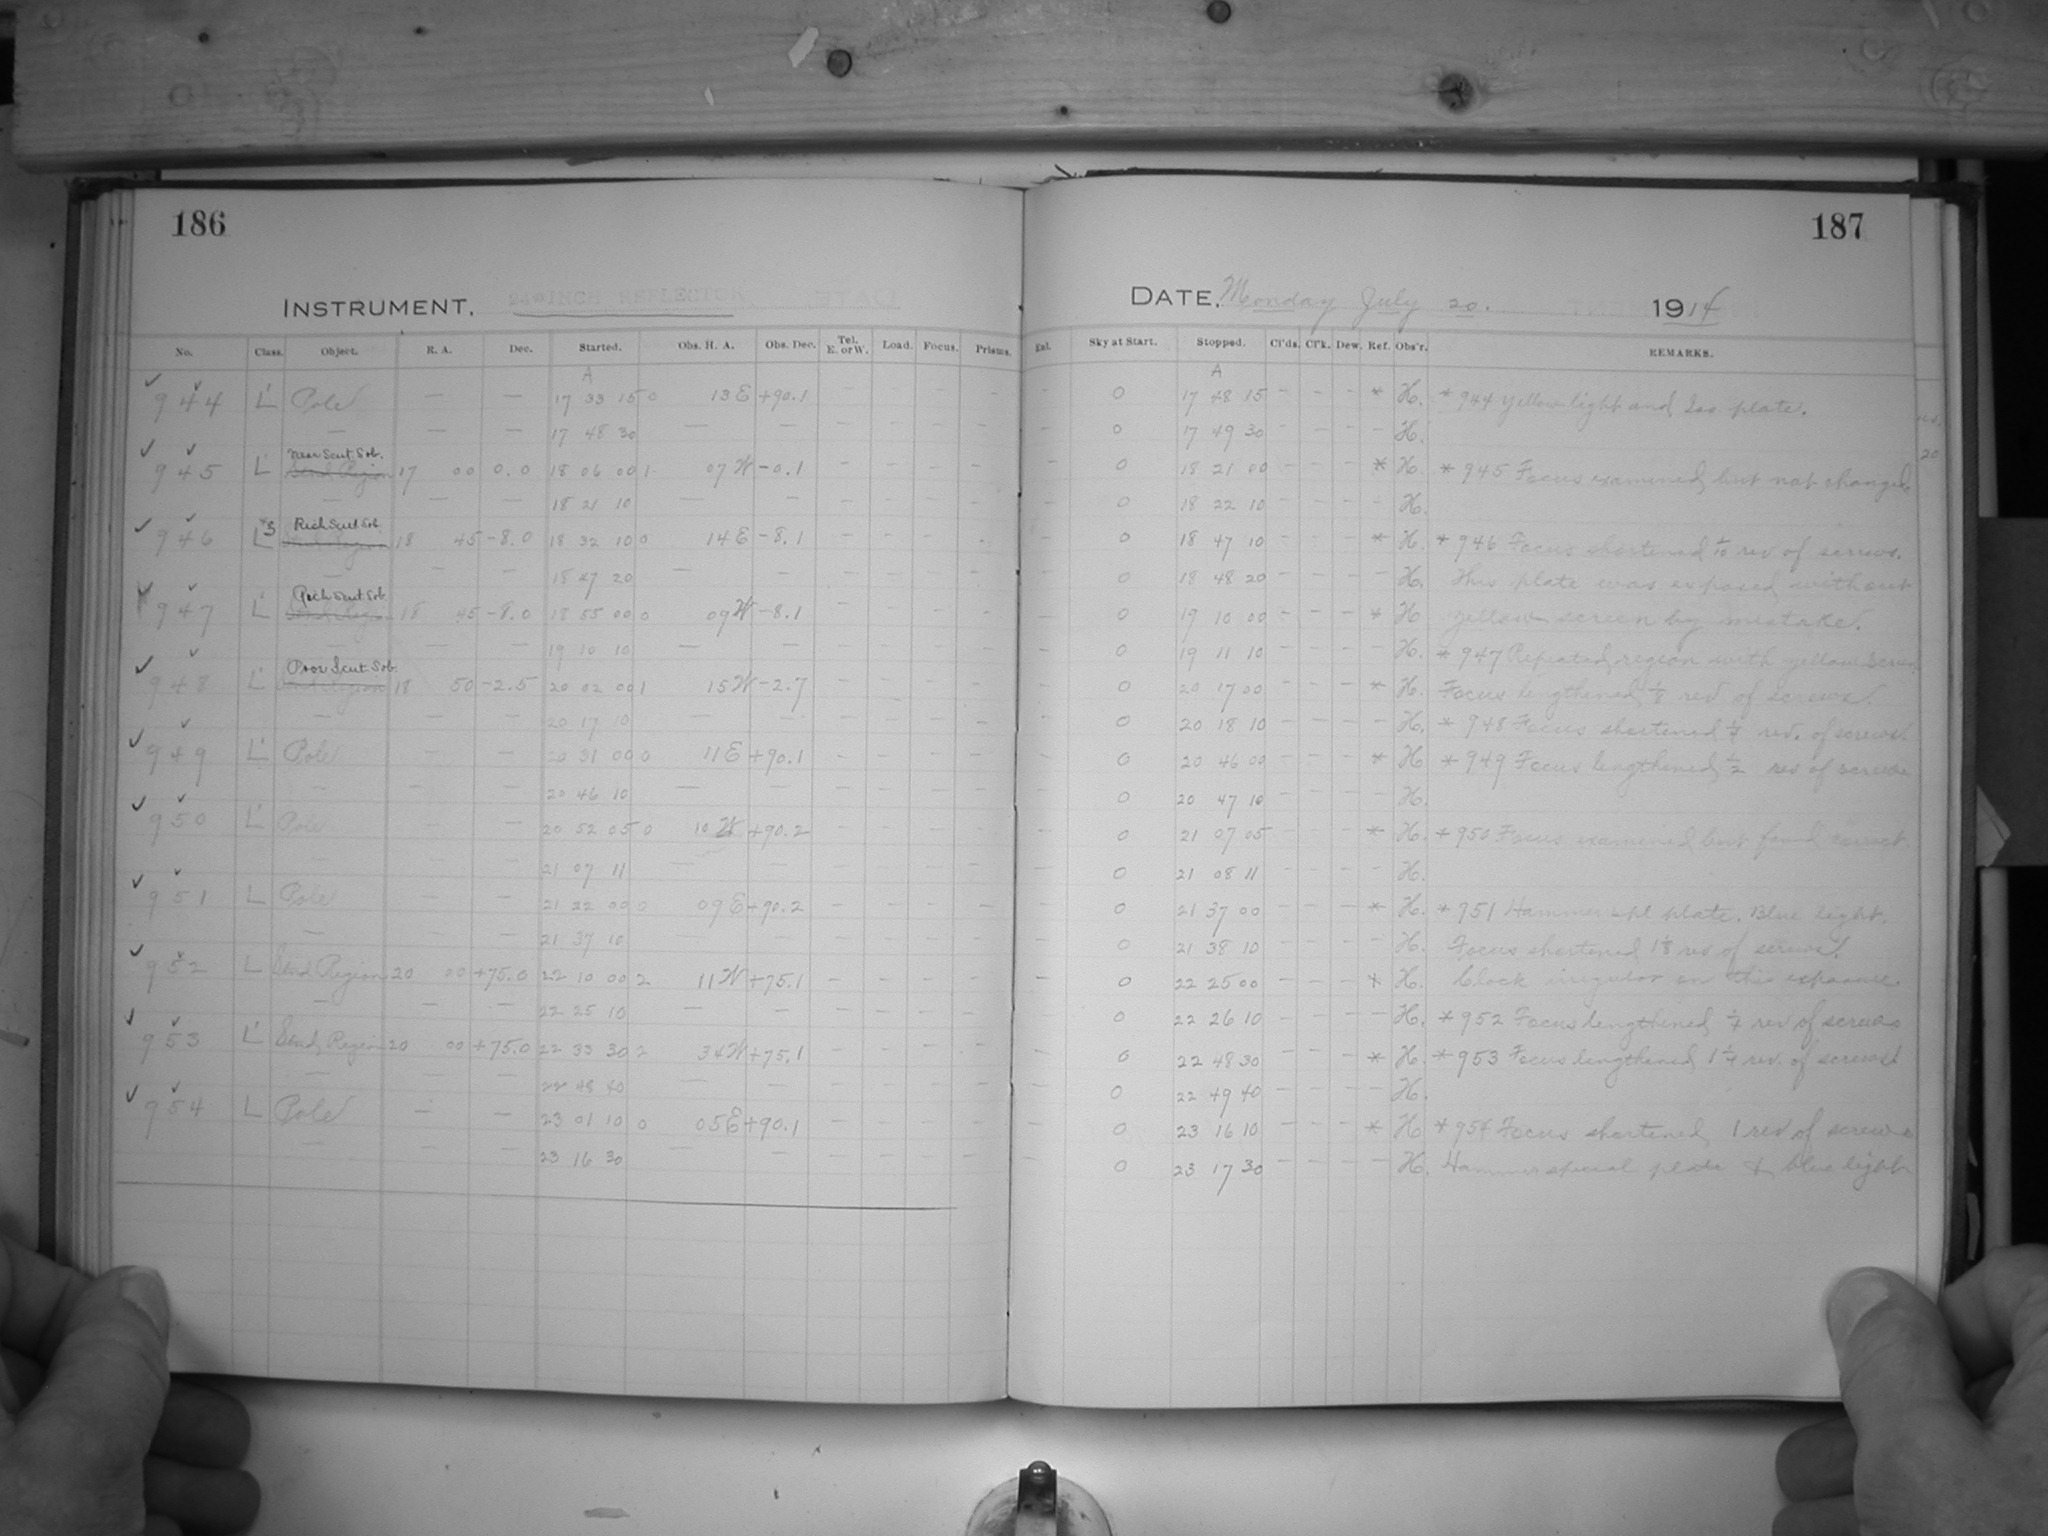 186
INSTRUMENT. 24 INCH REFLECTOR
No. Class. Object. R. A. Dec. Started. Obs. H. A. Obs. Dec. Tel. E. or W. Load. Focus. Prisms.
A
944 L' Pole — — 17 33 15 0 13 E +90.1 — — — —
— — — 17 48 30 — — — — — —
near Scut. Sob.
945 L' Stnd Region 17 00 0.0 18 06 00 1 07 W -0.1 — — — —
— — — 18 21 10 — — — — — —
Rich Scut Sob.
946 L Stnd Region 18 45 -8.0 18 32 10 0 14 E -8.1 — — — —
— — — 18 47 20 — — — — — —
Rich Scut Sob.
947 L' Stnd Region 18 45 -8.0 18 55 00 0 09 W -8.1 — — — —
— — — 19 10 10 — — — — — —
Poor Scut Sob.
948 L' Stnd Region 18 50 -2.5 20 02 00 1 15 W -2.7 — — — —
— — — 20 17 10 — — — — — —
949 L' Pole — — 20 31 00 0 11 E +90.1 — — — —
— — — 20 46 10 — — — — — —
950 L' Pole — — 20 52 05 0 10 W +90.2 — — — —
— — — 21 07 11 — — — — — —
951 L Pole — — 21 22 00 0 09 E +90.2 — — — —
— — — 21 37 10 — — — — — —
952 L Stnd Region 20 00 +75.0 22 10 00 2 11 W +75.1 — — — —
— — — 22 25 10 — — — — — —
953 L' Stnd Region 20 00 +75.0 22 33 30 2 34 W +75.1 — — — —
— — — 22 48 40 — — — — — —
954 L Pole — — 23 01 10 0 05 E +90.1 — — — —
— — — 23 16 30 — — — — — —
187
DATE, Monday July 20. 1914
Enl. Sky at Start. Stopped. Cl'ds. Cl'k. Dew. Ref. Obs'r. REMARKS.
A
— 0 17 48 15 — — — * H. * 944 Yellow light and Iso. plate.
— 0 17 49 30 — — — — H.
— 0 18 21 00 — — — * H. * 945 Focus examined but not changed
— 0 18 22 10 — — — — H.
— 0 18 47 10 — — — * H. * 946 Focus shortened 1/10 rev of screws.
— 0 18 48 20 — — — — H. This plate was exposed without
— 0 19 10 00 — — — * H yellow screen by mistake.
— 0 19 11 10 — — — — H. * 947 Repeated region with yellow screen
— 0 20 17 00 — — — * H. Focus lengthened 1/8 rev of screws.
— 0 20 18 10 — — — — H. * 948 Focus shortened 1/4 rev. of screws.
— 0 20 46 00 — — — * H * 949 Focus lengthened 1/2 rev of screws
— 0 20 47 10 — — — — H.
— 0 21 07 05 — — — * H. * 950 Focus examined but found correct
— 0 21 08 11 — — — — H.
— 0 21 37 00 — — — * H. * 951 Hammer spl plate. Blue light.
— 0 21 38 10 — — — — H. Focus shortened 1 1/8 rev of screws.
— 0 22 25 00 — — — * H. Clock irregular on this exposure
— 0 22 26 10 — — — — H. * 952 Focus lengthened 1/4 rev of screws
— 0 22 48 30 — — — * H. * 953 Focus lengthened 1 1/4 rev. of screws
— 0 22 49 40 — — — — H.
— 0 23 16 10 — — — * H * 954 Focus shortened 1 rev of screws
— 0 23 17 30 — — — — H. Hammer special plate & blue light
20